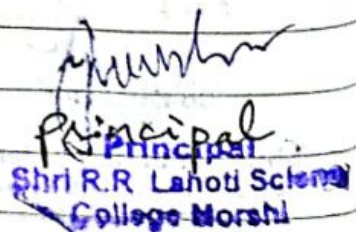 Principal
Principal
Shri R.R Lahoti Science
College Morshi